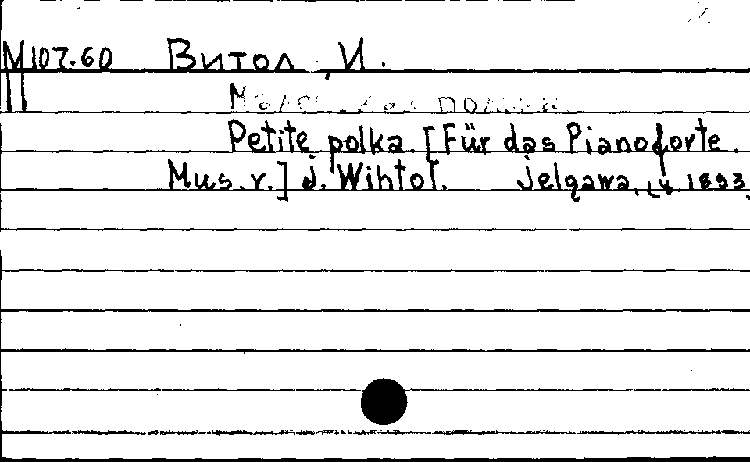 М107.60 Витол, И.
Маленькая полька
Petite polka. [Für das Pianoforte.
Mus. v.] J. Wihtol. Jelgawa, 1893,